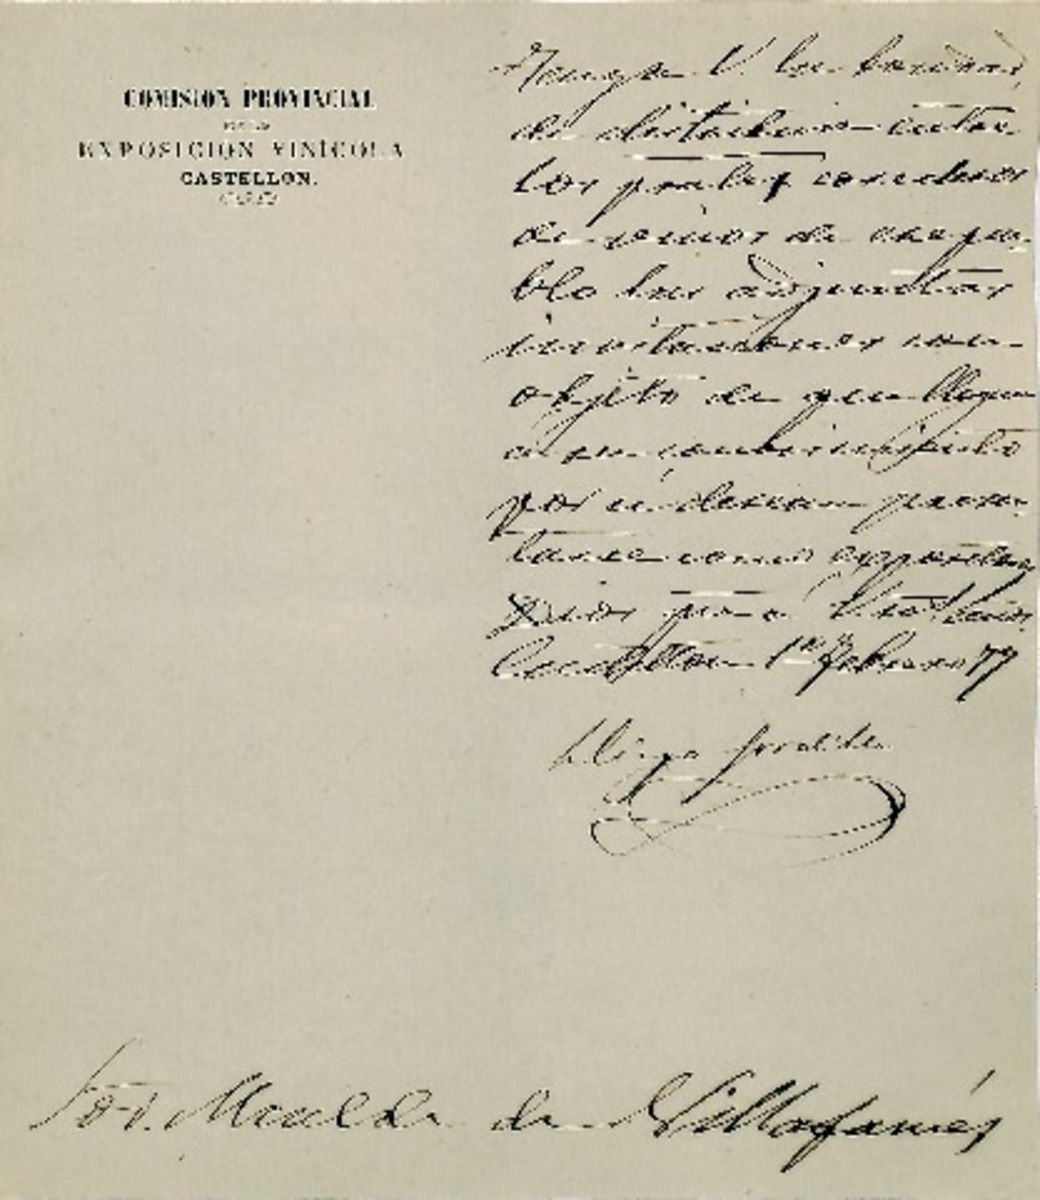 COMISION PROVINCIAL
EXPOSICION VINÍCOLA
CASTELLON.
Tenga V. la bondad
de distribuir entre
los prales cosecheros
de vinos de ese pue
blo las adjuntas
invitaciones con
objeto de que llegue
a su conocimiento
por si desean presen
tarse como expositores
Dios gue a V.
Castellon 1º Febrero 77
Sor. Alcalde de Villafamés